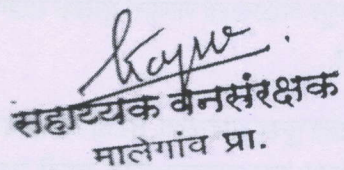 सहाय्यक वनसंरक्षक
मालेगांव प्रा.